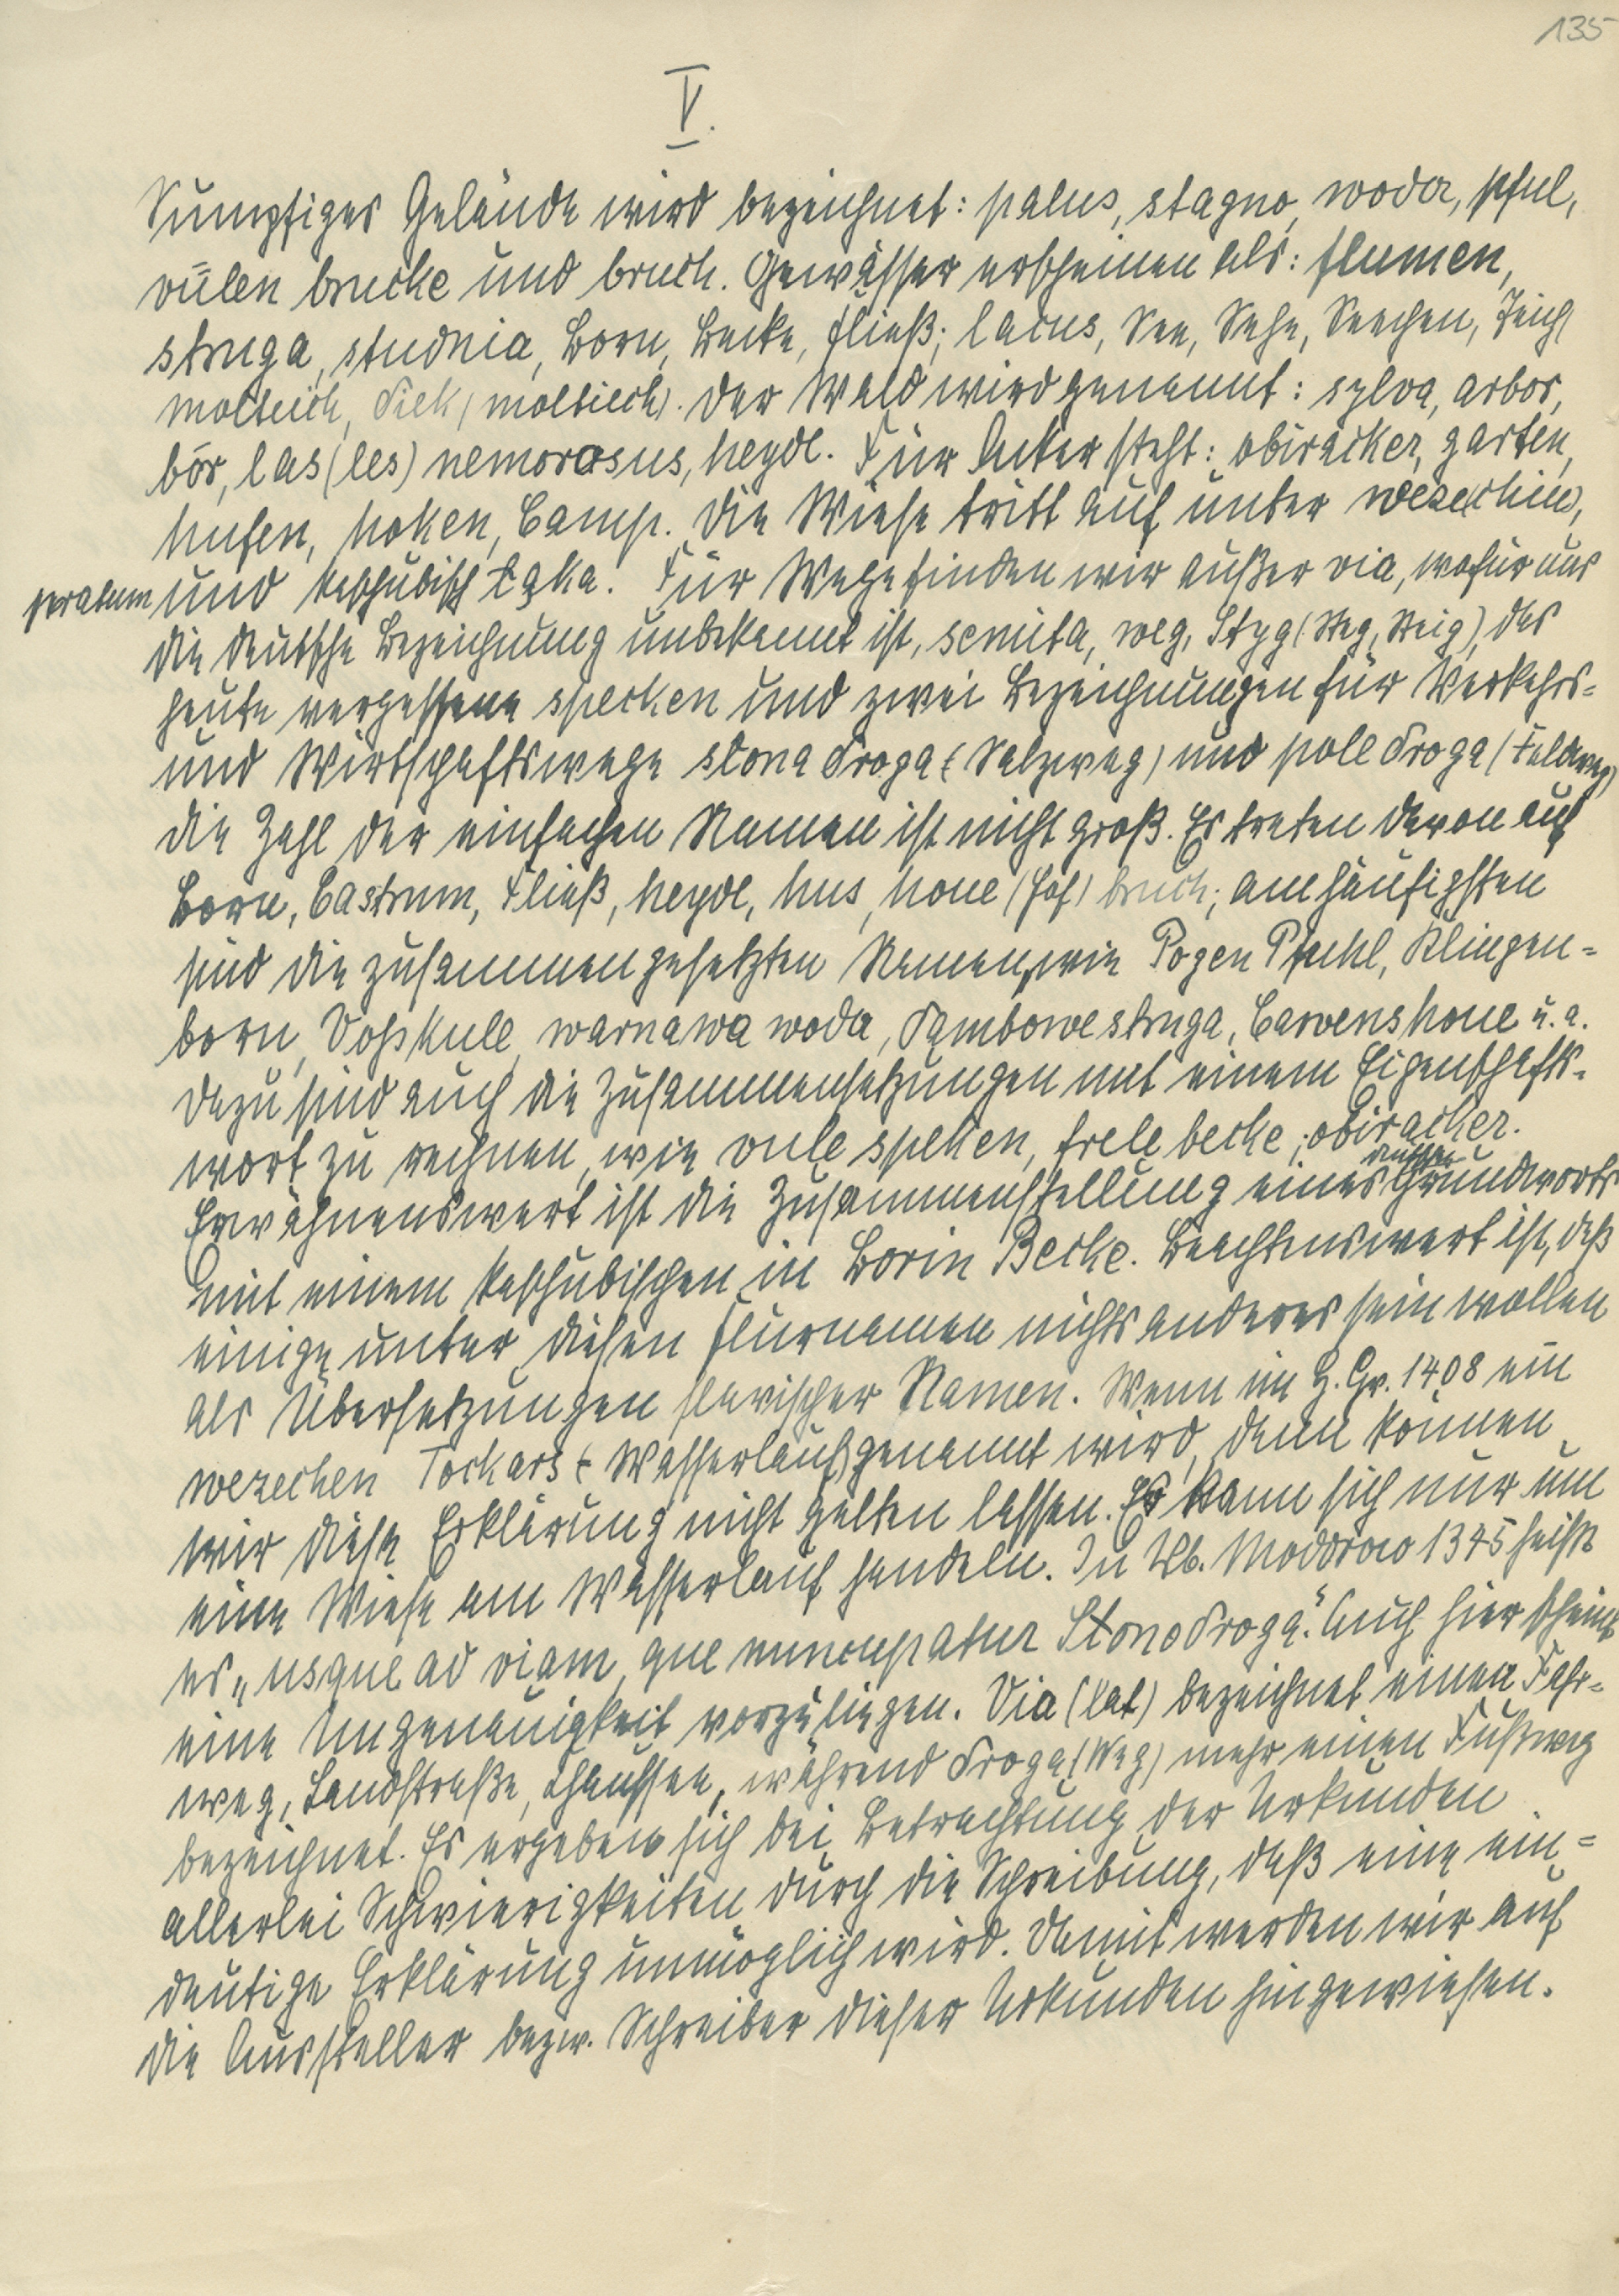 135
V.
Sumpfiges Gelände wird bezeichnet: palus, stagno, woda, pful,
vulen brucke und bruch. Gewässer erscheinen als: flumen,
struga, studnia, Born, Becke, Fließ; lacus, See, Sehe, Seechen, Teich
molteich, Diek (moltiech). Der Wald wird genannt: sylva, arbor,
bór, las (les) nemorosus, heyde. Für Acker steht: obiracker, garten,
hufen, hoken, Camp. Die Wiese tritt auf unter weze(chin),
pratum und kaschubisch łąka. Für Wege finden wir außer via, wofür uns
die deutsche Bezeichnung unbekannt ist, semita, weg, Styg (Steg, Steig), das
heute vergessene specken und zwei Bezeichnungen für Verkehrs-
und Wirtschaftswege słona droga (Salzweg) und polle droga (Feldweg)
Die Zahl der einfachen Namen ist nicht groß. Es treten davon auf
Born, Castrum, Fließ, heyde, hus, hove (Hof) bruch; am häufigsten
sind die zusammengesetzten Namen, wie Pogen Pfuhl, Klingen-
born, Voßkule, warnawa woda, Dambowe struga, Carvenshove u. a.
Dazu sind auch die Zusammensetzungen mit einem Eigenschafts-
wort zu rechnen, wie vule speken, frele becke, obiracker.
Erwähnenswert ist die Zusammenstellung eines deutschen Grundworts
mit einem kaschubischen in Borin Becke. Beachtenswert ist, daß
einige unter diesen Flurnamen nichts anderes sein wollen
als Übersetzungen slavischer Namen. Wenn im H. Gr. 1408 ein
wezechen Tockars (Wasserlauf) genannt wird, dann können
wir diese Erklärung nicht gelten lassen. Es kann sich nur um
eine Wiese am Wasserlauf handeln. In Ub. Moddrow 1345 heißt
es „usque ad viam, que nuncupatur Słonodroga". Auch hier scheint
eine Ungenauigkeit vorzuliegen. Via (lat) bezeichnet einen Fahr-
weg, Landstraße, Chaussee, während droga (Weg) mehr einen Fußweg
bezeichnet. Es ergeben sich bei Betrachtung der Urkunden
allerlei Schwierigkeiten durch die Schreibung, daß eine ein-
deutige Erklärung unmöglich wird. Damit werden wir auf
die Aussteller bezw. Schreiber dieser Urkunden hingewiesen.